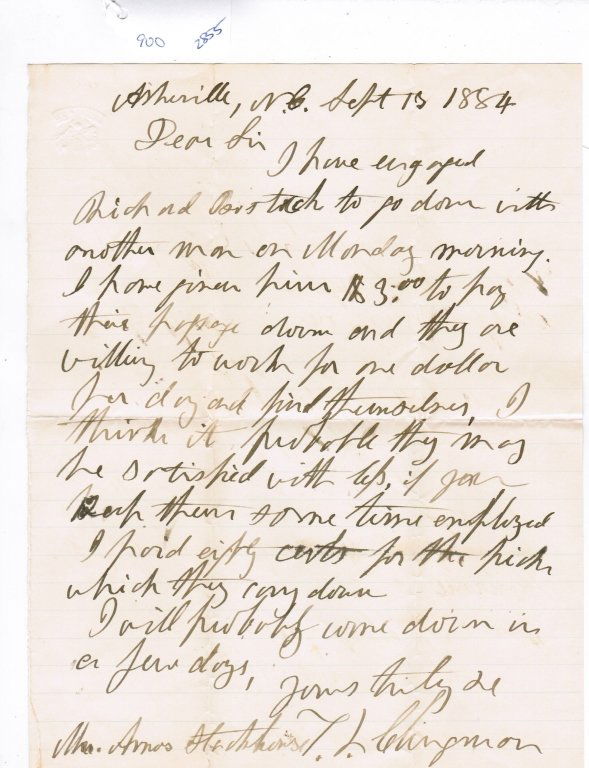 900 2855
Asheville, N.C. Sept 13 1884
Dear Sir
I have engaged
Richard to go down with
another man on Monday morning.
I have given him $3.00 to pay
their passage down and they are
willing to work for one dollar
per day and find themselves, I
think it probable they may
be satisfied with less, if you
keep them some time employed
I paid eighty cents for the picks
which they carry down
I will probably come down in
a few days,
yours truly &c
Mr. Amos Stackhouse T. L. Clingman